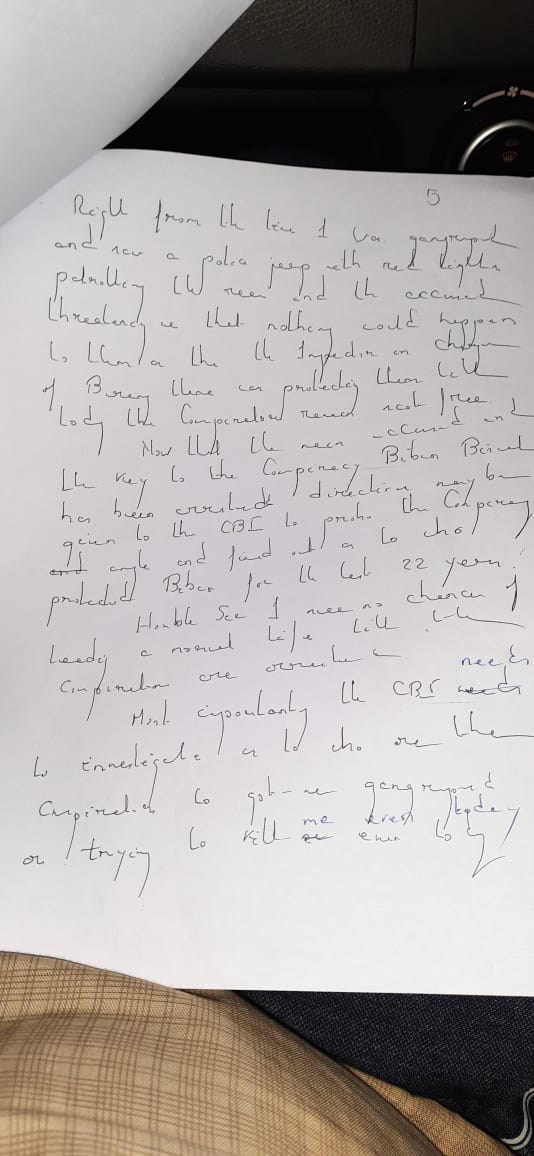 5
Right from the time I was gangraped
and saw a police jeep with red lights
patrolling the area and the accused
threatening me that nothing could happen
to them as the the Inspector in charge
of Barang there was protecting them till
today the Conspirators remain scot free.
Now that the main accused and
the key to the Conspiracy Biban Biswal
has been arrested directive may be
given to the CBI to probe the Conspiracy
angle and find out as to who
protected Biban for the last 22 years.
Honble Sir I see no chance of
leading a normal life till the
Conspirators are arrested.
Most importantly the CBI needs
to investigate as to who are the
Conspirators to get me gangraped
or trying to kill me even today